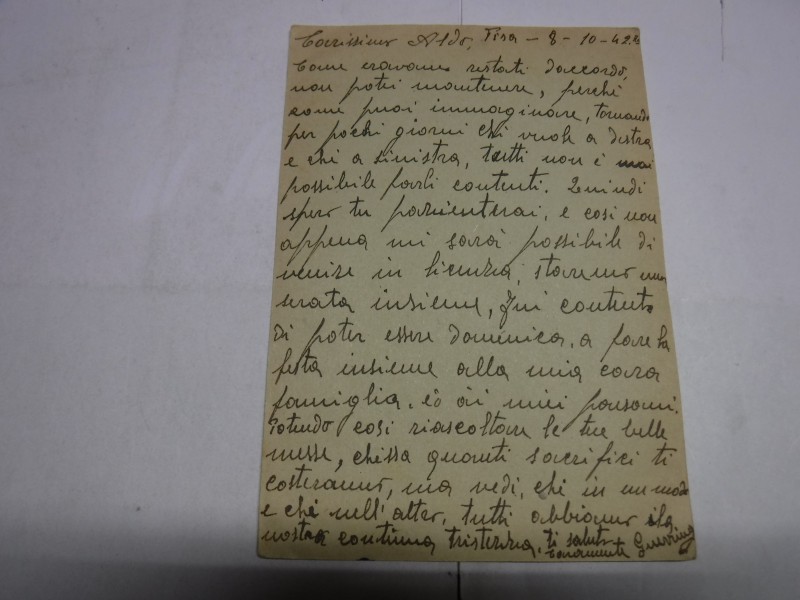 Carissimo Aldo, Pisa - 8 - 10 - 42
Come eravamo restati daccordo,
non potei mantenere, perché
come puoi immaginare, tornando
per pochi giorni chi vuole a destra
e chi a sinistra, tutti non è mai
possibile farli contenti. Quindi
spero tu pazienterai, e cosi non
appena mi sarà possibile di
venire in licenza, staremo una
serata insieme, fui contento
di poter essere domenica, a fare la
festa insieme alla mia cara
famiglia, ai miei paesani.
Potendo cosi riascoltare le tue belle
messe, chissa quanti sacrifici ti
costeranno, ma vedi, chi in un modo
e chi nell'altro, tutti abbiamo la
nostra continua tristezza, ti saluto
caramente Guerrino